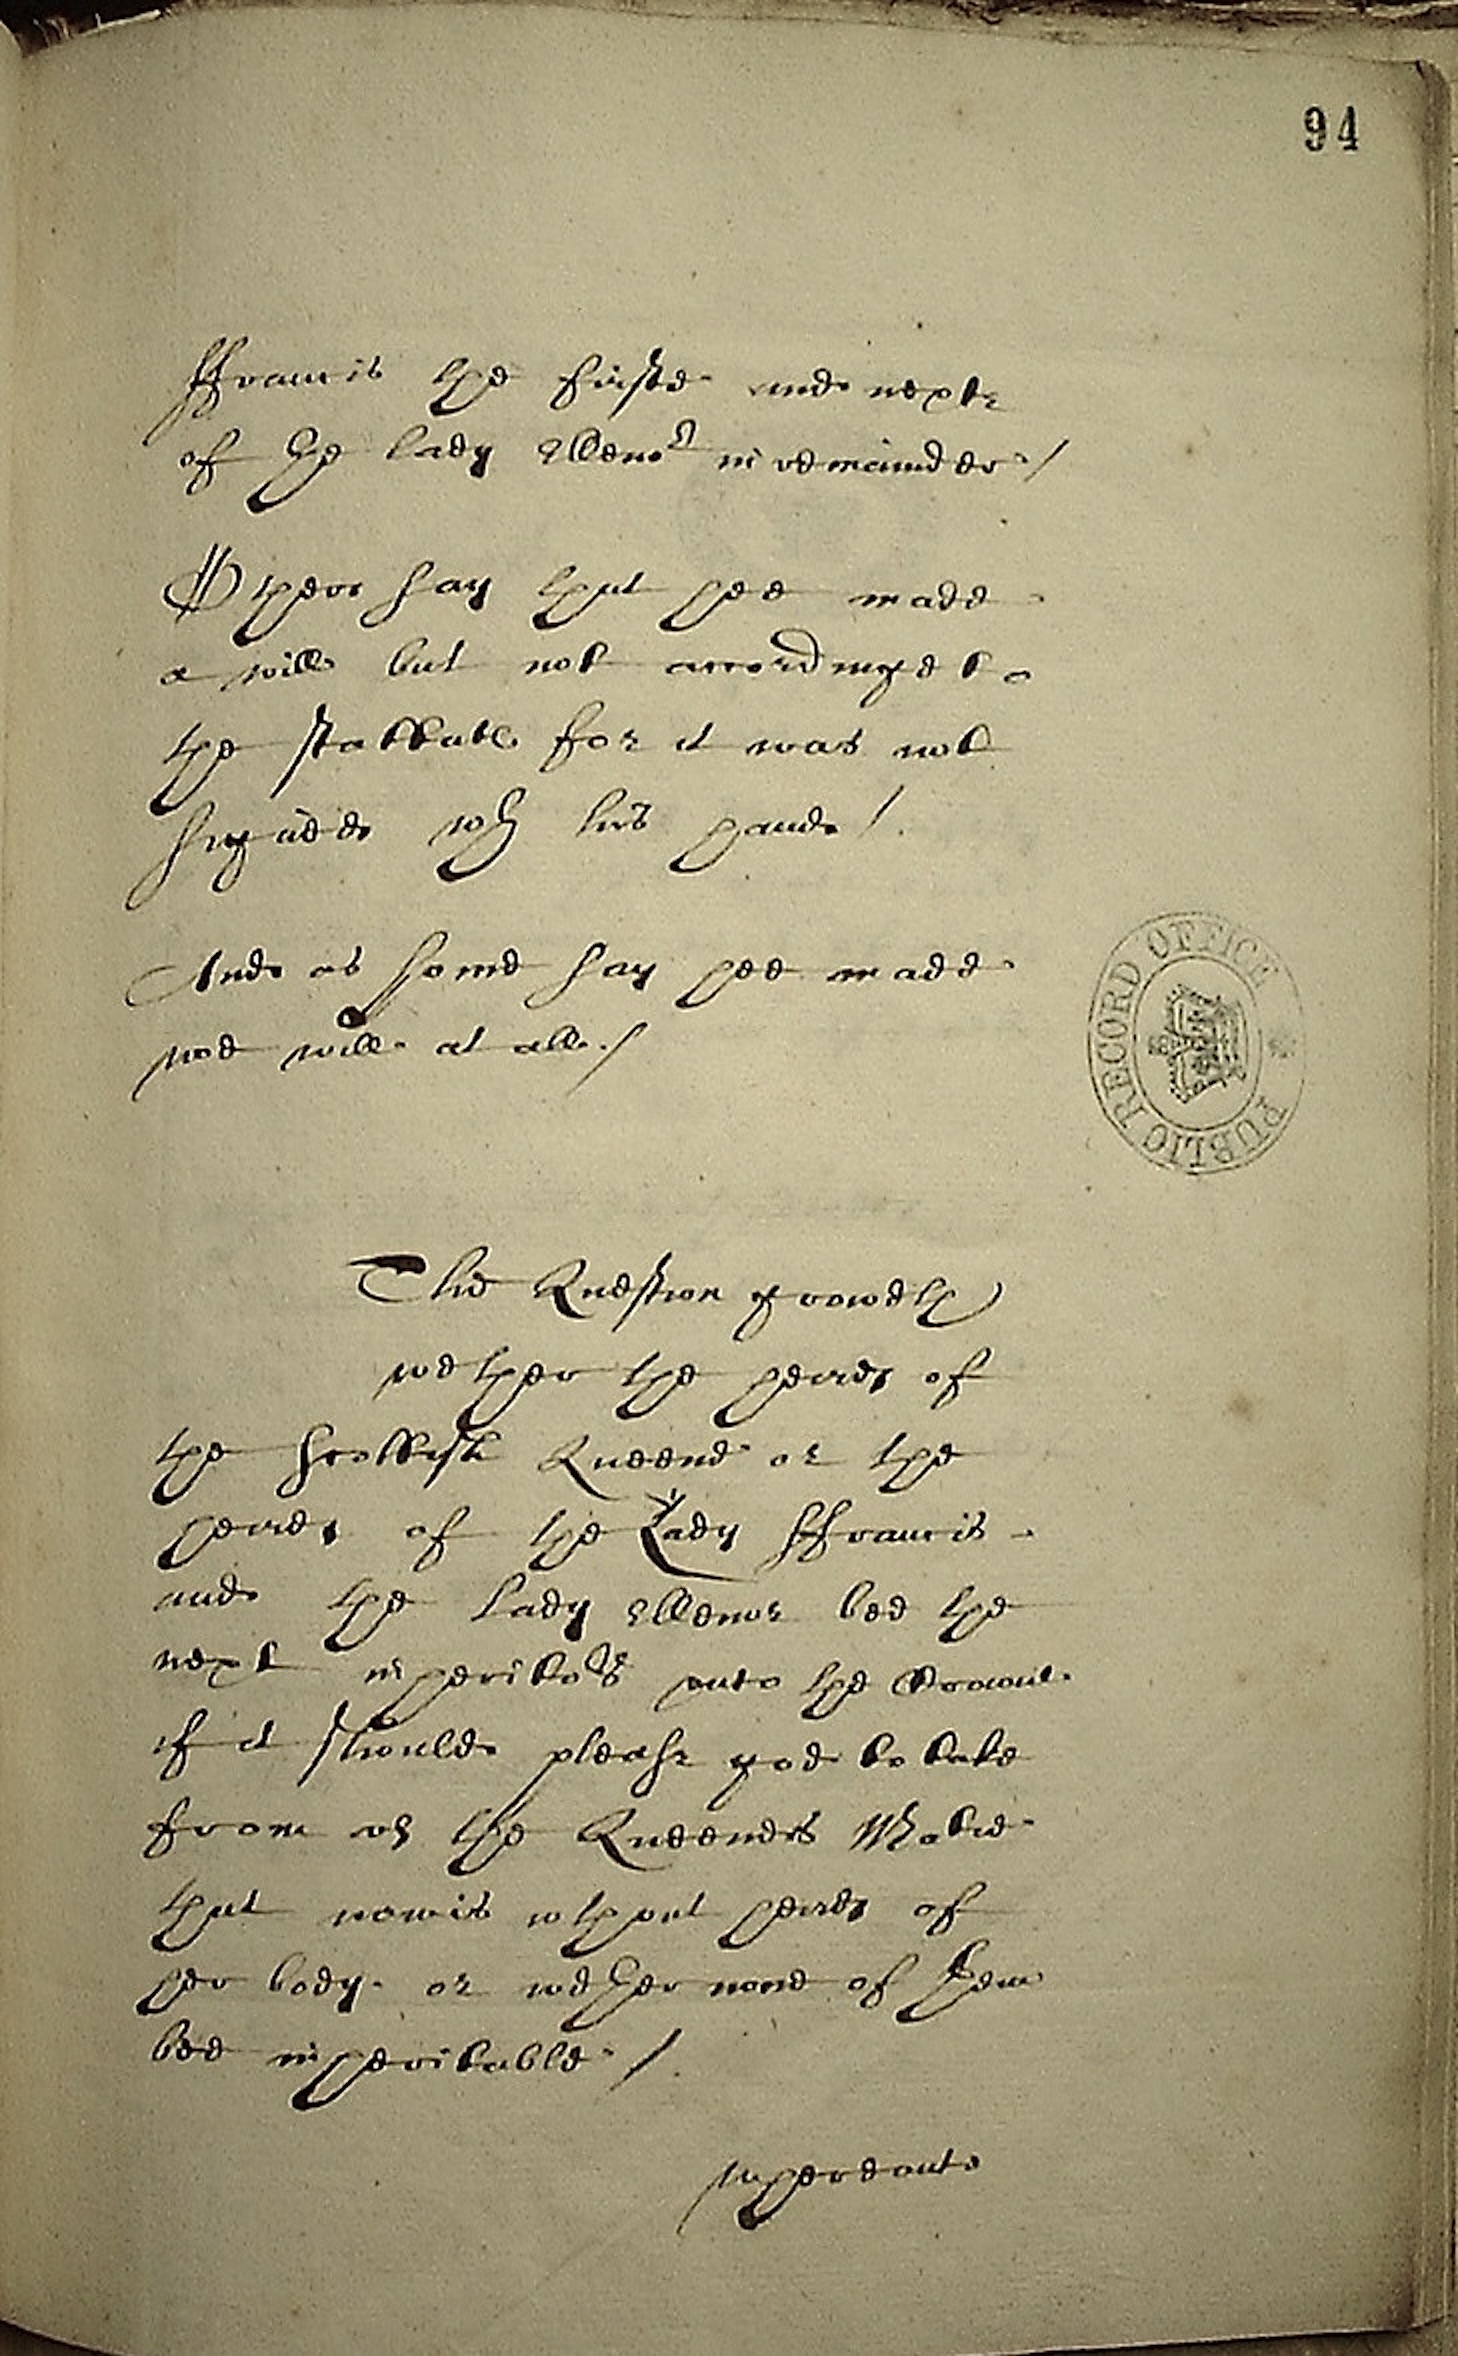 94
ffrancis the firste and nexte
of the lady Ellenor in remainder /
Others say that hee made
a will but not accordinge to
the stattute for it was not
signed wth his hand /.
And as some say hee made
noe will at all. /
PUBLIC RECORD OFFICE
The Question groweth
wether the heires of
the scottish Queene or the
heires of the Lady ffrancis
and the lady Ellenor bee the
next inheritors unto the Crowne
if it should please god to take
from us the Queenes Matie
that now is wthout heires of
her body. or wether none of them
bee inheritable /.
whereunto